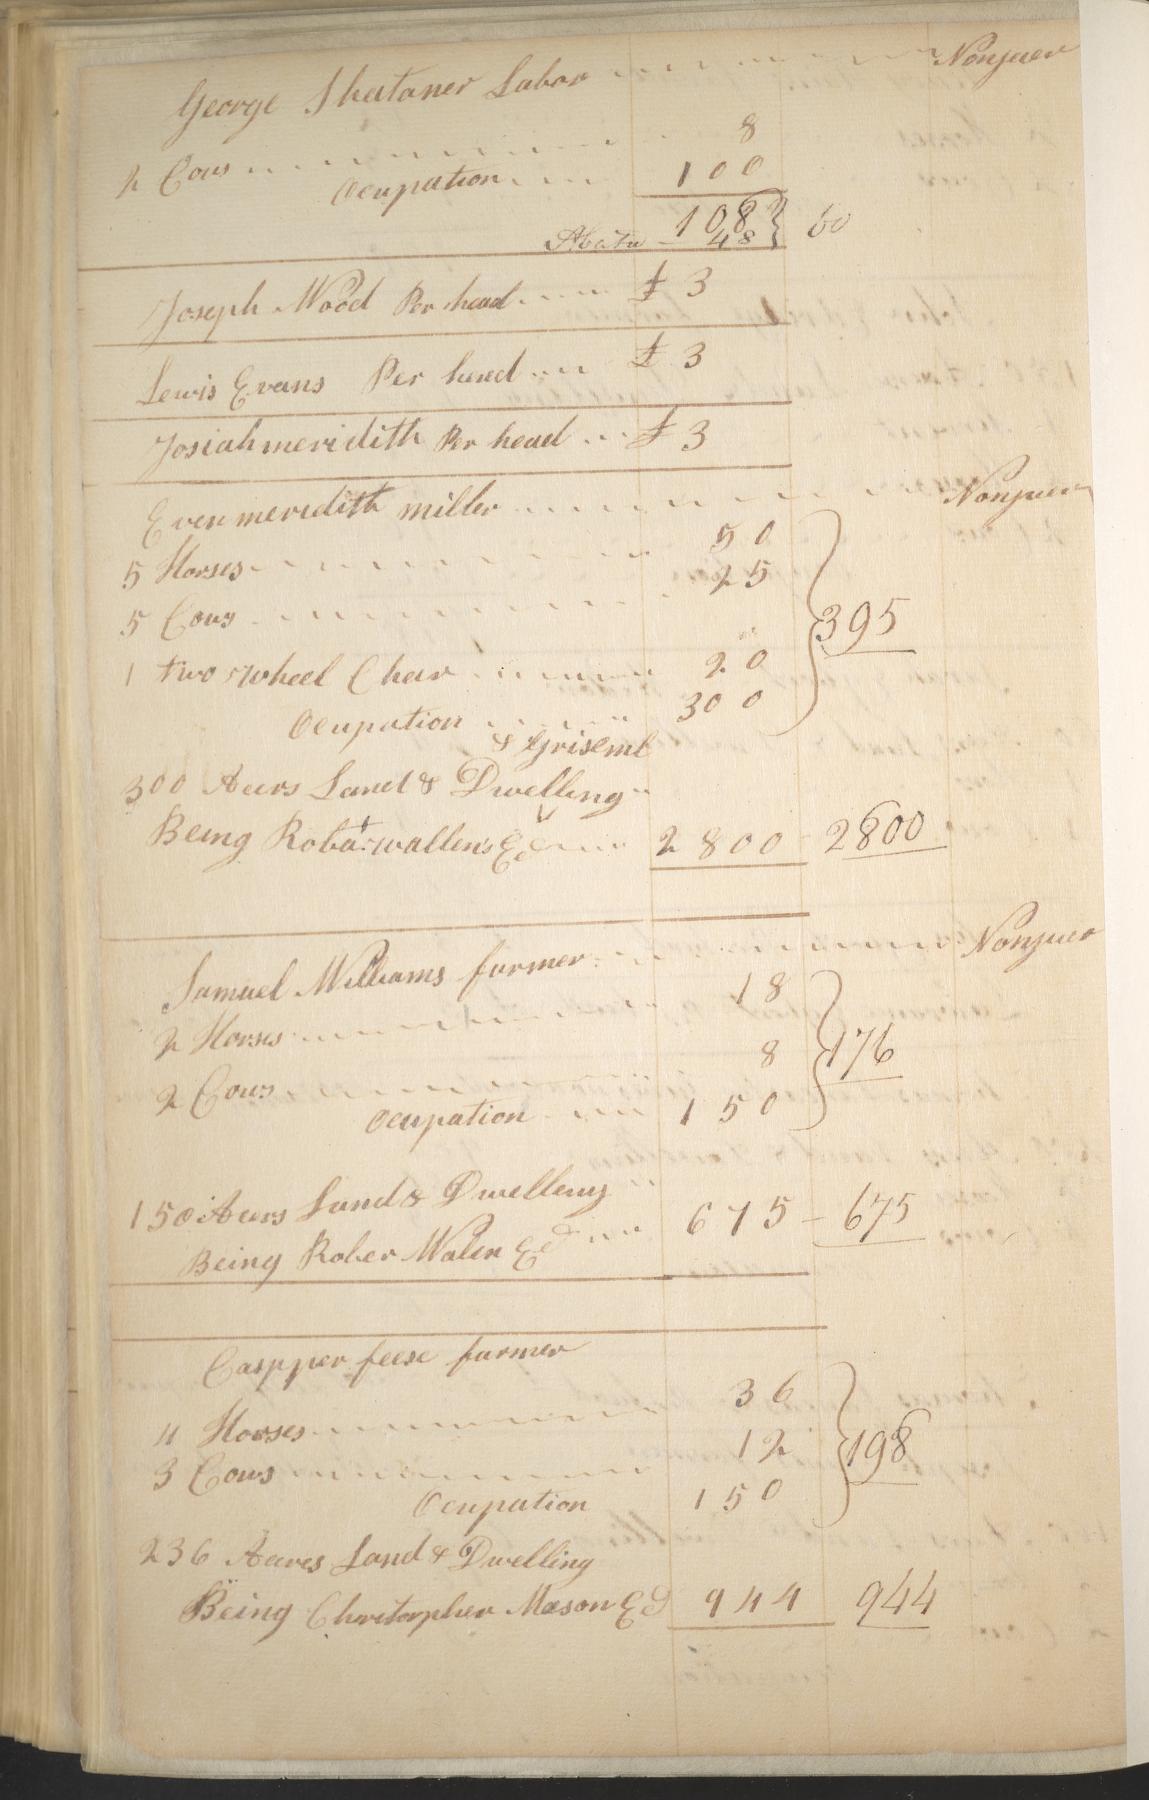 George Shutaner Labor Nonjuer
2 Cows 8
Ocupation 100
108
Abatu 48 } 60
Joseph Wood Per head £ 3
Lewis Evans Per head £ 3
Josiah meridith Per head £ 3
Even meredith miller Nonjuer
5 Horses 50
5 Cows 25
1 two wheel Chear 20
Ocupation 300 } 395
& Griseml
300 Acurs Land & Dwelling
Being Robat wallens Ed 2800 - 2800
Samuel Williams farmer Nonjuer
2 Horses 18
2 Cows 8 } 176
Ocupation 150
150 Acurs Land & Dwelleng
Being Rober Walen Ed 675 - 675
Caspper feese farmer
4 Horses 36
3 Cows 12 } 198
Ocupation 150
236 Acures Land & Dwelling
Being Chritorpher Mason Ed 944 944